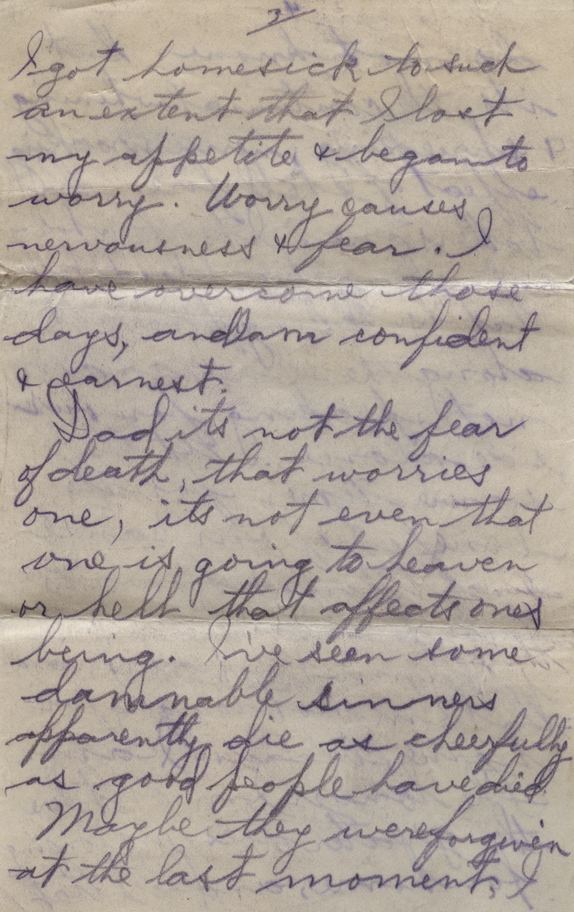 3
I got homesick to such
an extent that I lost
my appetite & began to
worry. Worry causes
nervousness & fear. I
have overcome those
days, and am confident
& earnest.
Dad its not the fear
of death, that worries
one, its not even that
one is going to heaven
or hell that affects ones
being. I've seen some
damnable sinners
apparently die as cheerfully
as good people have died.
Maybe they were forgiven
at the last moment, I